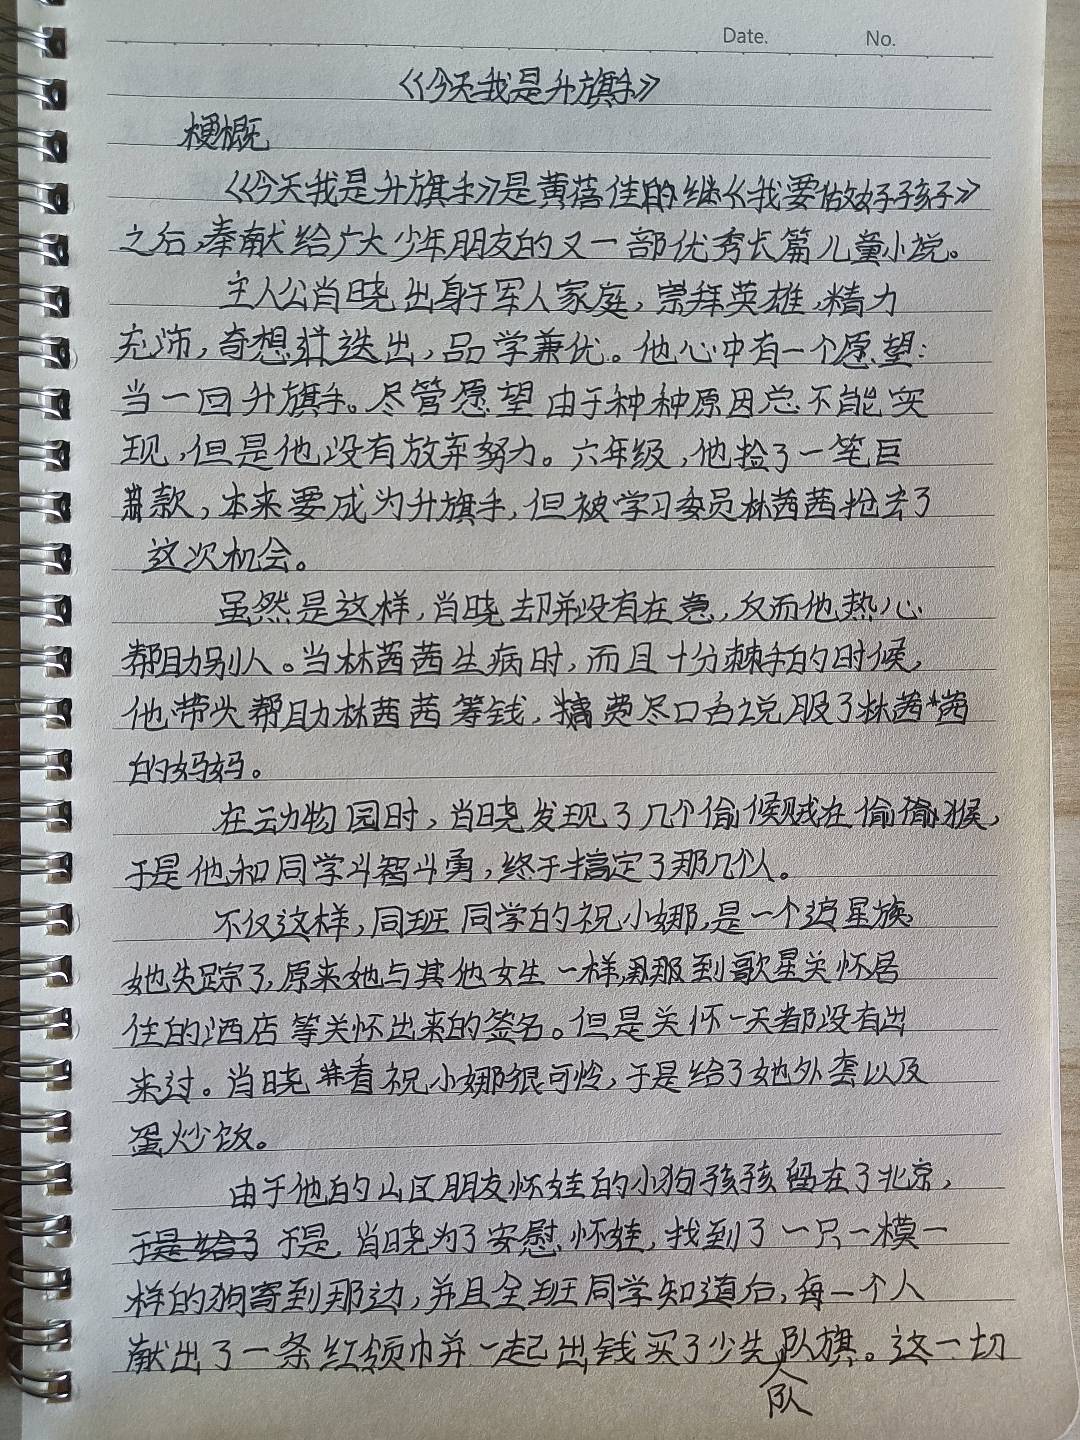 Date. No.
《今天我是升旗手》
梗概
《今天我是升旗手》是黄蓓佳的继《我要做好孩子》
之后,奉献给广大少年朋友的又一部优秀长篇儿童小说。
主人公肖晓出身于军人家庭,崇拜英雄,精力
充沛,奇想迭出,品学兼优。他心中有一个愿望:
当一回升旗手。尽管愿望由于种种原因总不能实
现,但是他没有放弃努力。六年级,他捡了一笔巨
款,本来要成为升旗手,但被学习委员林茜茜抢去了
这次机会。
虽然是这样,肖晓却并没有在意,反而他热心
帮助别人。当林茜茜生病时,而且十分棘手的时候,
他带头帮助林茜茜筹钱,费尽口舌说服了林茜茜
的妈妈。
在动物园时,肖晓发现了几个偷猴贼在偷偷猴,
于是他和同学斗智斗勇,终于搞定了那几个人。
不仅这样,同班同学的祝小娜,是一个追星族,
她失踪了,原来她与其他女生一样,跑到歌星关怀居
住的酒店等关怀出来的签名。但是关怀一天都没有出
来过。肖晓看祝小娜很可怜,于是给了她外套以及
蛋炒饭。
由于他的山区朋友怀娃的小狗孩孩留在了北京,
于是给了 于是,肖晓为了安慰怀娃,找到了一只一模一
样的狗寄到那边,并且全班同学知道后,每一个人
献出了一条红领巾并一起出钱买了少先队旗。这一切
队